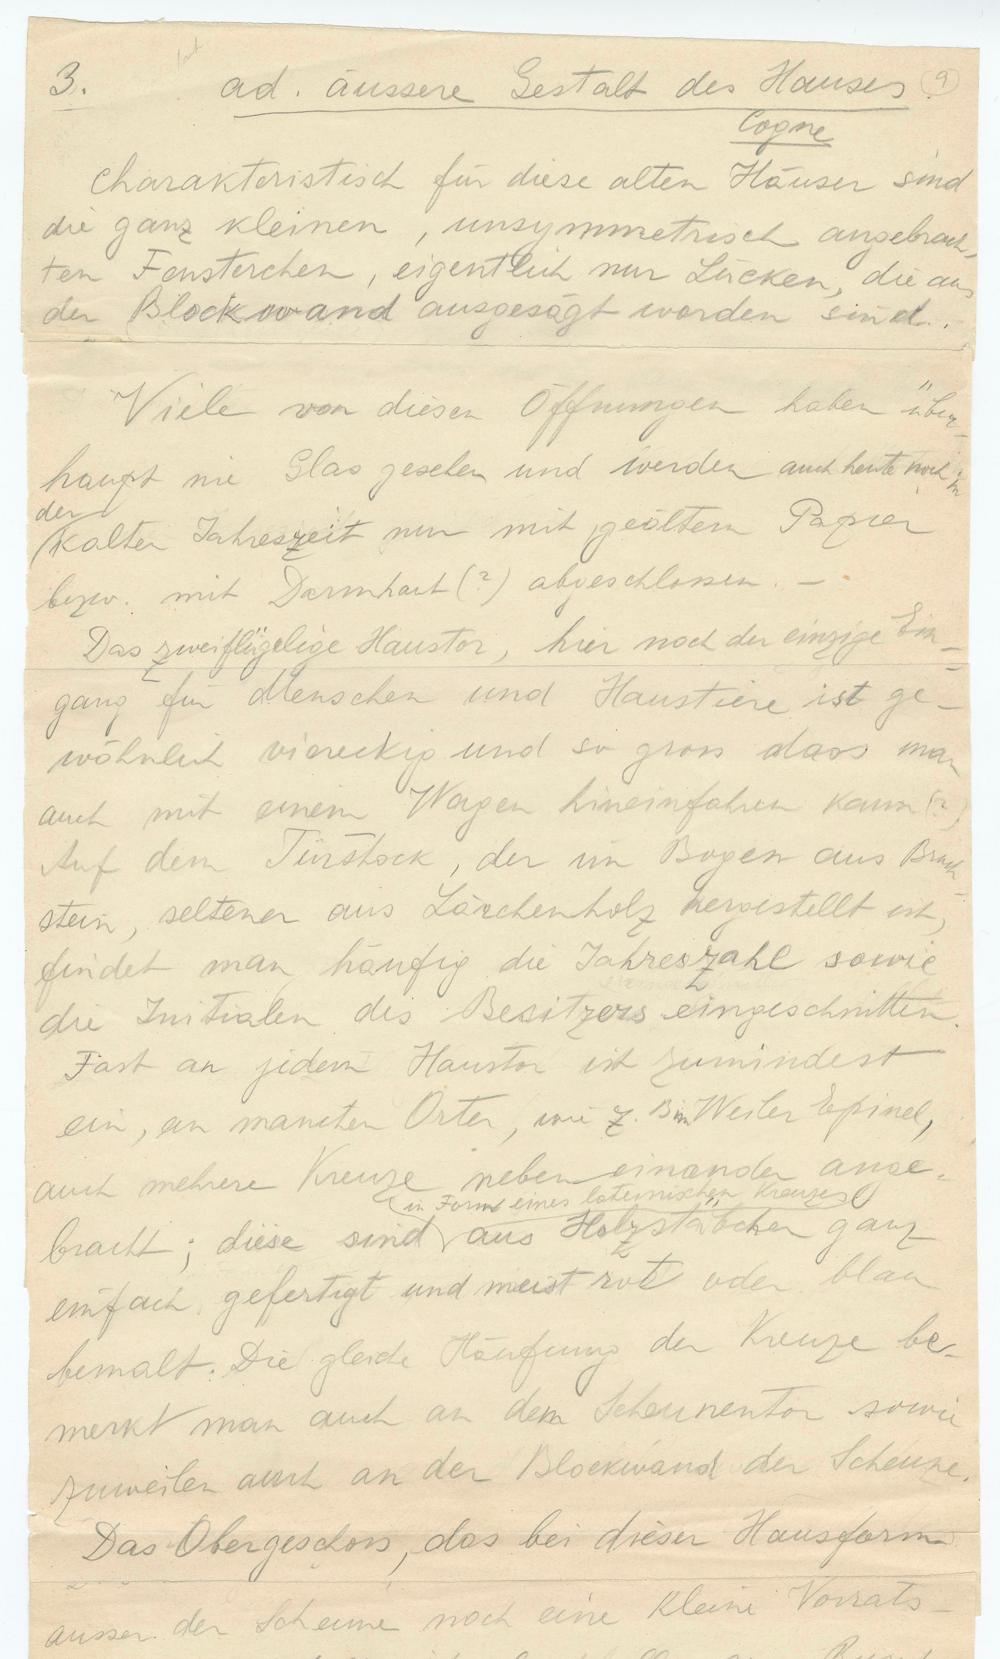 3. ad. äussere Gestalt des Hauses. 9
Cogne
Charakteristisch für diese alten Häuser sind
die ganz kleinen, unsymmetrisch angebrach-
ten Fensterchen, eigentlich nur Lücken, die aus
der Blockwand ausgesägt worden sind.
Viele von diesen Öffnungen haben über-
haupt nie Glas gesehen und werden auch heute noch in
der
kalten Jahreszeit nur mit geöltem Papier
bezw. mit Darmhaut (?) abgeschlossen. –
Das zweiflügelige Haustor, hier noch der einzige Ein-
gang für Menschen und Haustiere ist ge-
wöhnlich viereckig und so gross dass man
auch mit einem Wagen hineinfahren kann (?)
Auf dem Türstock, der im Bogen aus Bruch-
stein, seltener aus Lärchenholz hergestellt ist,
findet man häufig die Jahreszahl sowie
die Initialen des Besitzers eingeschnitten.
Fast an jedem Haustor ist zumindest
ein, an manchen Orten, wie z. B. im Weiler Epinel,
auch mehrere Kreuze neben einander ange-
(in Form eines lateinischen Kreuzes)
bracht; diese sind aus Holzstäbchen ganz
einfach gefertigt und meist rot oder blau
bemalt. Die gleiche Häufung der Kreuze be-
merkt man auch an dem Scheunentor sowie
zuweilen auch an der Blockwand der Scheune.
Das Obergeschoss, das bei dieser Hausform
ausser der Scheune noch eine kleine Vorrats-